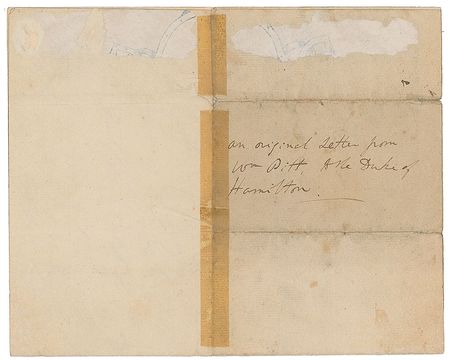 an original Letter from
Wm Pitt, to the Duke of
Hamilton.